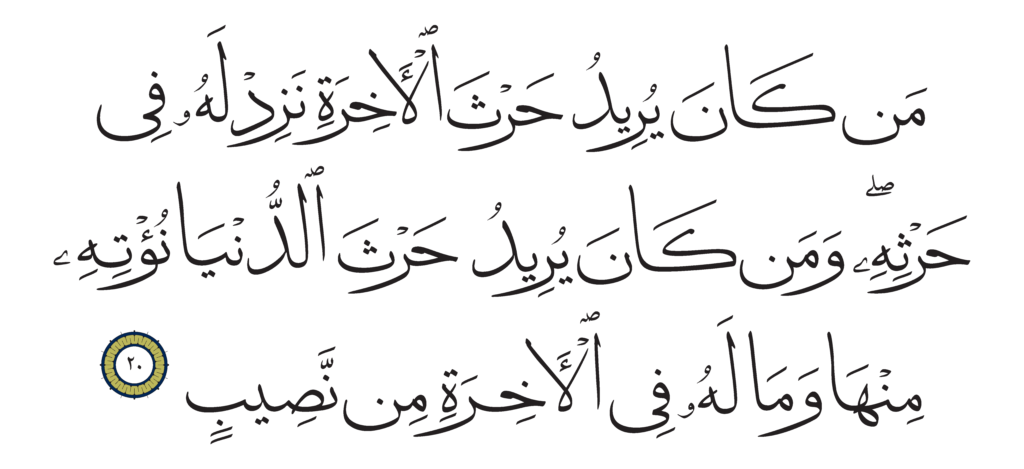 مَن كَانَ يُرِيدُ حَرْثَ ٱلْأَخِرَةِ نَزِدْ لَهُۥ فِى
حَرْثِهِۦۖ وَمَن كَانَ يُرِيدُ حَرْثَ ٱلدُّنْيَا نُؤْتِهِۦ
مِنْهَا وَمَا لَهُۥ فِى ٱلْأَخِرَةِ مِن نَّصِيبٍ ٢٠